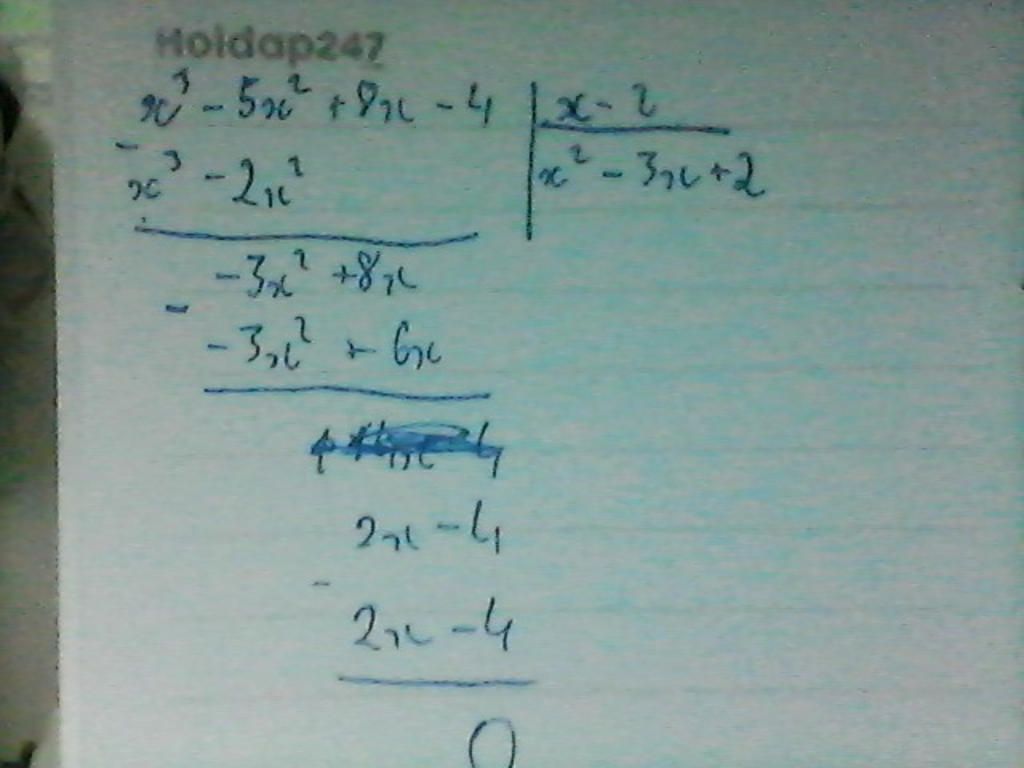 Hoidap247
x³ - 5x² + 8x - 4 | x - 2
- x³ - 2x² | x² - 3x + 2
-3x² + 8x
-
-3x² + 6x
2x - 4
-
2x - 4
0